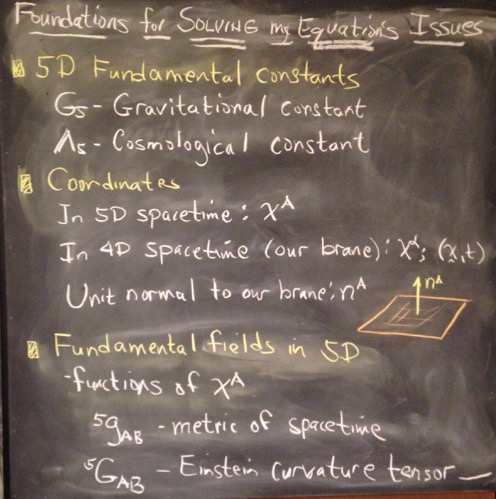 Foundations for SOLVING my Equation's Issues
5D Fundamental constants
G₅ - Gravitational constant
Λ₅ - Cosmological constant
Coordinates
In 5D spacetime: xᴬ
In 4D spacetime (our brane): xᵅ; (x,t)
Unit normal to our brane: nᴬ
nᴬ
Fundamental fields in 5D
-functions of xᴬ
⁵gAB - metric of spacetime
⁵GAB - Einstein curvature tensor